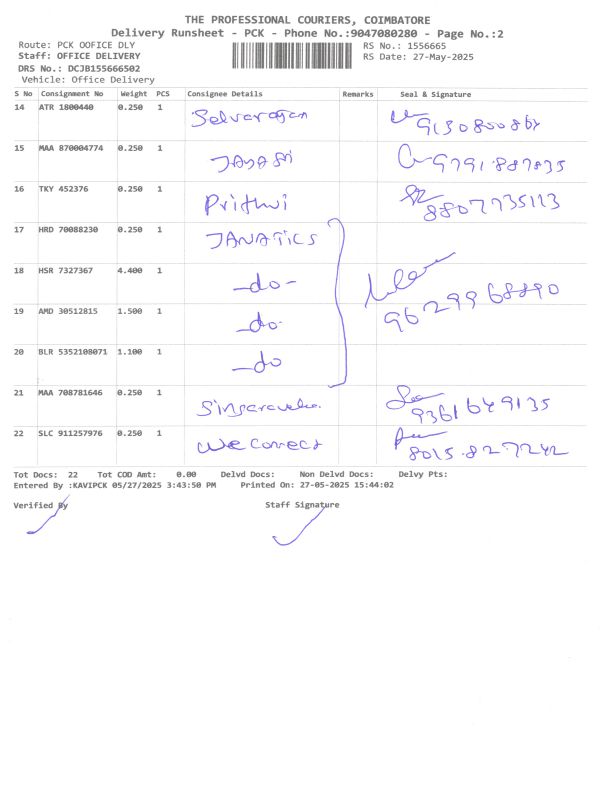 THE PROFESSIONAL COURIERS, COIMBATORE
Delivery Runsheet - PCK - Phone No.:9047080280 - Page No.:2
Route: PCK OOFICE DLY RS No.: 1556665
Staff: OFFICE DELIVERY RS Date: 27-May-2025
DRS No.: DCJB155666502
Vehicle: Office Delivery
S No Consignment No Weight PCS Consignee Details Remarks Seal & Signature
14 ATR 1800440 0.250 1 Selvarajan
15 MAA 870004774 0.250 1 JAYASRI 9791887835
16 TKY 452376 0.250 1 Prithvi 8807735113
17 HRD 70088230 0.250 1 JANATICS
18 HSR 7327367 4.400 1 -do- 9629968890
19 AMD 30512815 1.500 1 -do-
20 BLR 5352108071 1.100 1 -do
21 MAA 708781646 0.250 1 9361649135
22 SLC 911257976 0.250 1 We Connect 8015827242
Tot Docs: 22 Tot COD Amt: 0.00 Delvd Docs: Non Delvd Docs: Delvy Pts:
Entered By :KAVIPCK 05/27/2025 3:43:50 PM Printed On: 27-05-2025 15:44:02
Verified By Staff Signature